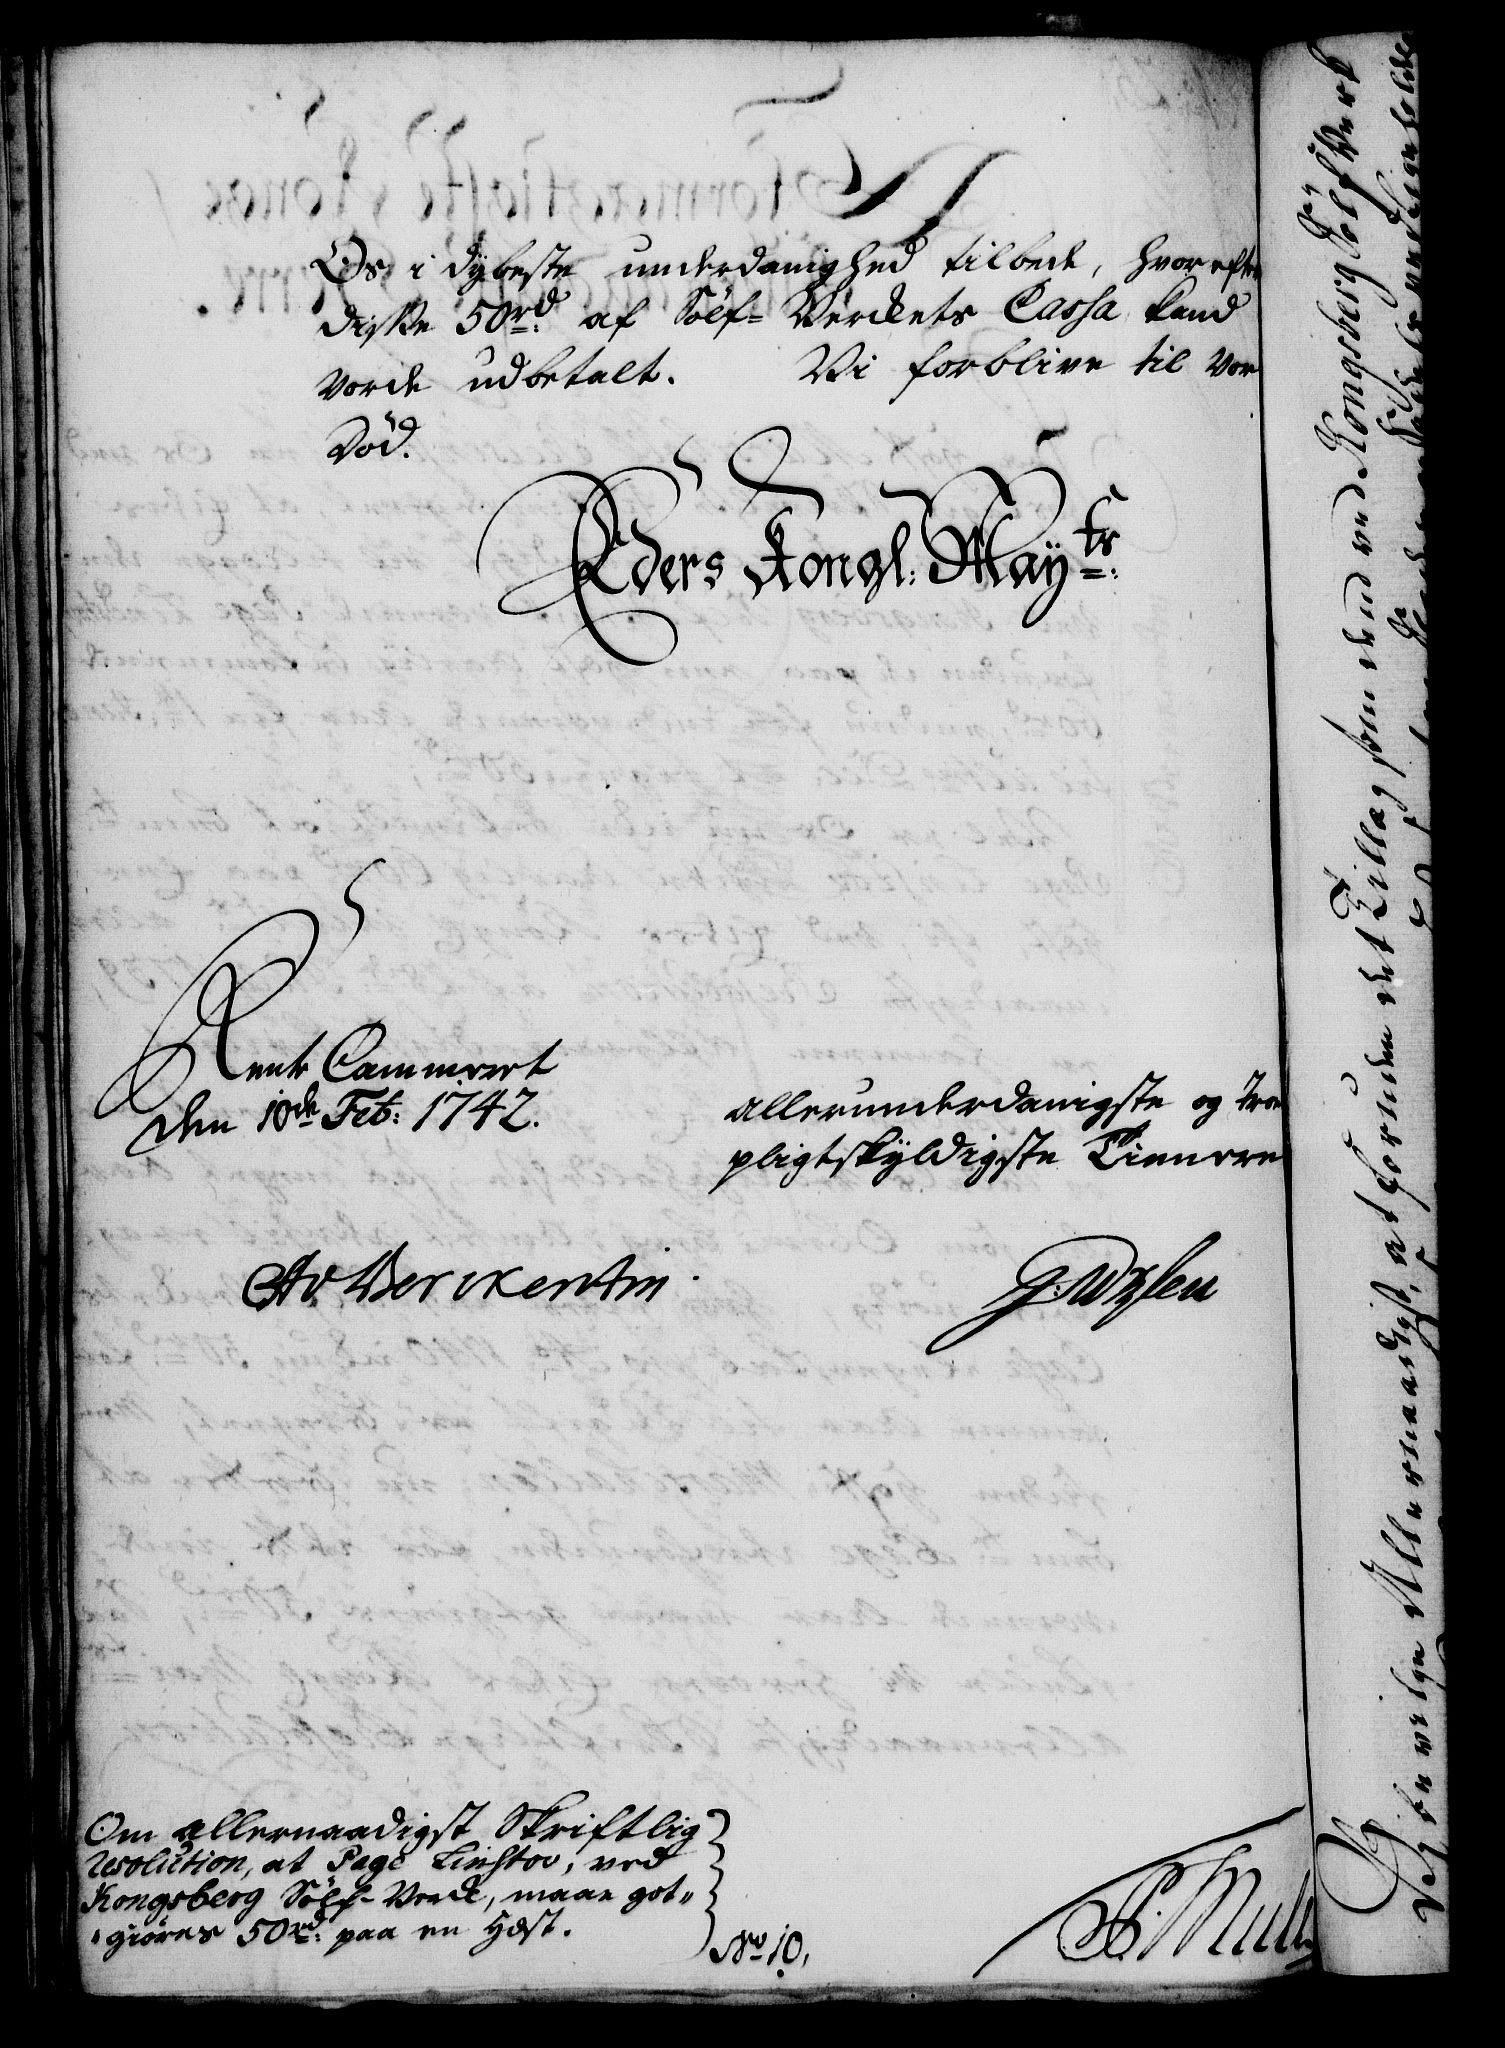 Os i dybeste underdanighed tilbede, hvor efter
diske 50 rd: af Sölf- Verckets Cassa kand
vorde udbetalt. Vi forblive til vor
Död.
Eders Kongl: Mayts:
Rente Cammeret
den 10de Feb: 1742.
allerunderdanigste og troe
pligtskyldigste Tienere
Av Berckentin.
J. Wylsen
Om allernaadigst Skriftlig
resolution, at Page Linstov, ved
Kongsberg Sölf-Verck, maae got-
giöres 50 rd: paa en Hest.
No 10.
Vi ville Allernaadigst, at foruden det Tillæg som ved Kongsberg Sölf Verck